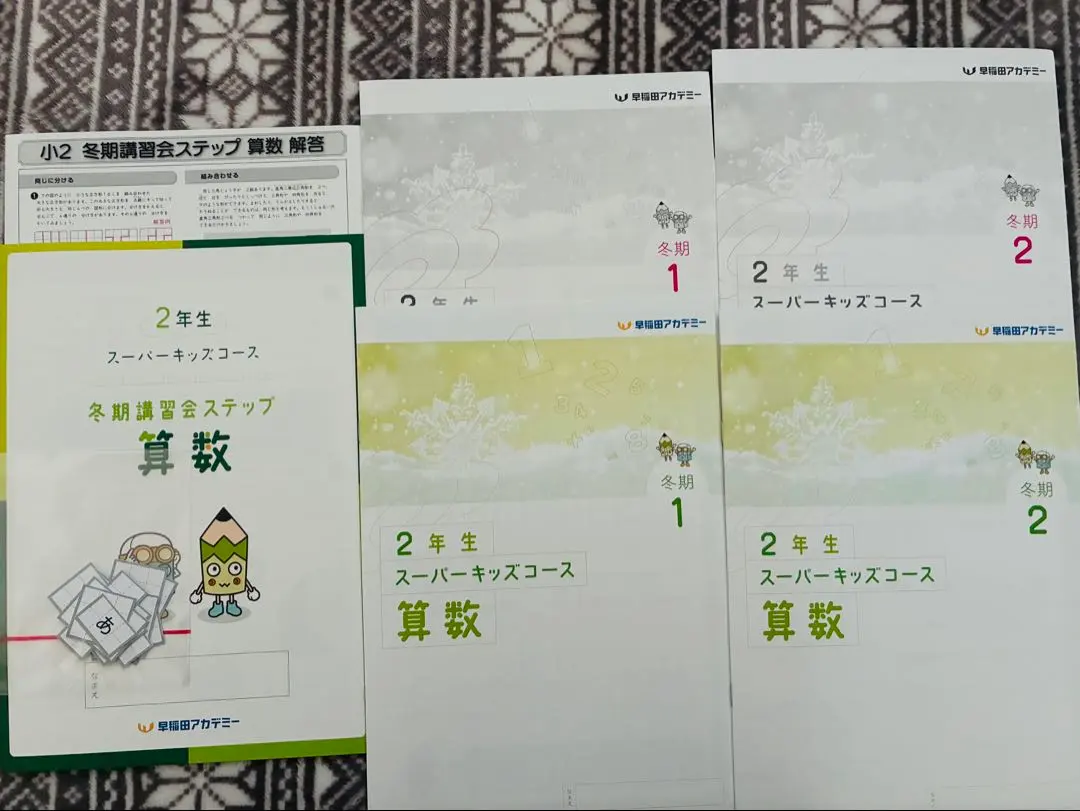 小2 冬期講習会ステップ 算数 解答
同じに分ける
組み合わせる
解答例
2年生
スーパーキッズコース
冬期講習会ステップ
算数
す
なまえ
早稲田アカデミー
早稲田アカデミー
冬期
1
2年生
早稲田アカデミー
冬期
1
2年生
スーパーキッズコース
算数
早稲田アカデミー
冬期
2
2年生
スーパーキッズコース
早稲田アカデミー
冬期
2
2年生
スーパーキッズコース
算数